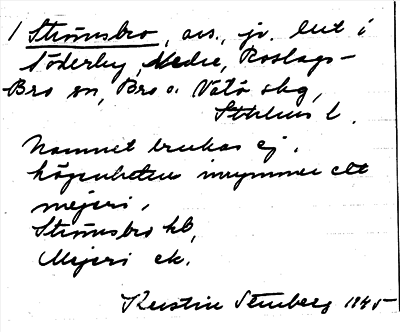 / Strömsbro, avs., jv. beb i
Söderby, Nedre, Roslags-
Bro sn, Bro o. Vätö skg,
Sthlms l.
Namnet brukas ej.
högenheten inrymmer ett
mejeri,
Strömsbro hb,
Mejeri ek.
Kerstin Stenberg 1945